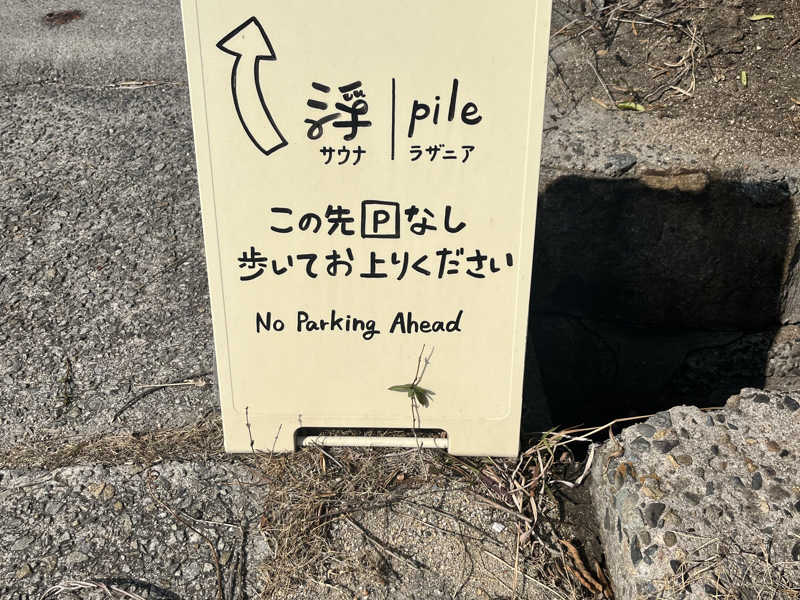 浮 | pile
サウナ ラザニア
この先Pなし
歩いてお上りください
No Parking Ahead